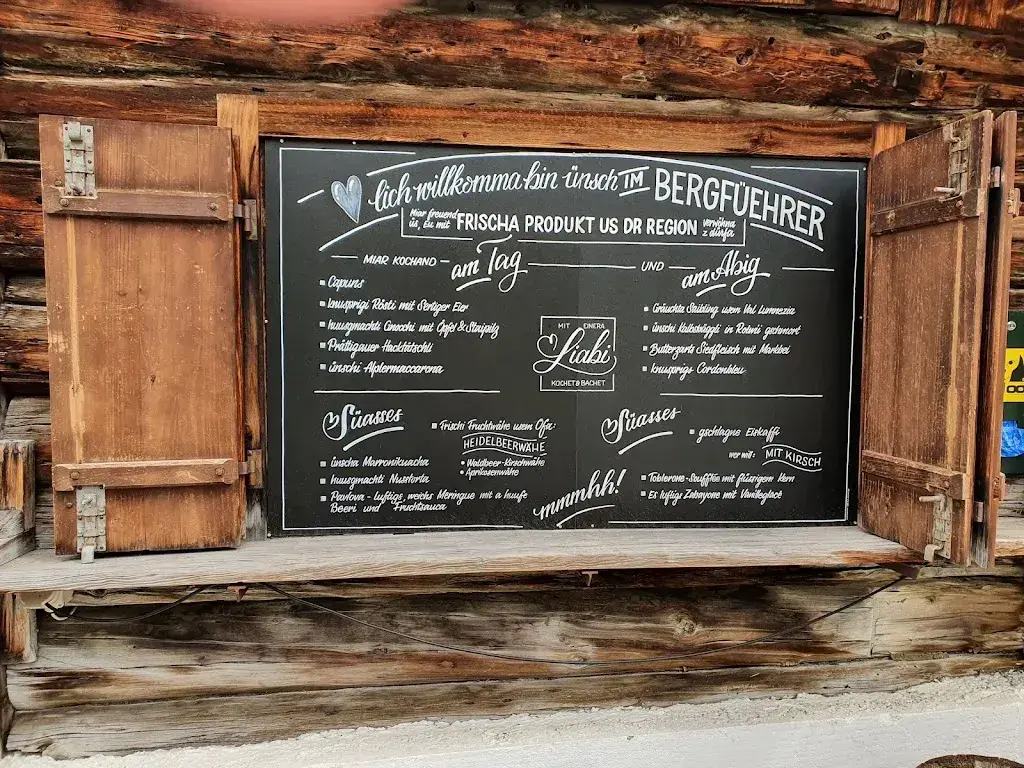 lich willkomma bin ünsch IM BERGFÜEHRER
Miar freuend üs, Eu mit FRISCHA PRODUKT US DR REGION verwöhna z dürfa
MIAR KOCHAND am Tag UND am Abig
Capuns
knusprigi Rösti mit Sertiger Eier
huusgmachti Gnocchi mit Öpfel & Steipilz
Prättigauer Hacktätschli
ünschi Älplermaccarona
MIT EINERA
Liabi
KOCHET & BACHET
Gräuchta Saibling usem Val Lumnezia
ünschi Kalbsbäggli in Rotwii gschmort
Butterzarts Siedfleisch mit Markbei
knusprigs Cordonbleu
Süasses
Frischi Fruchtwähe usem Ofa:
HEIDELBEERWÄHE
Waldbeer-Kirschwähe
Aprikosenwähe
ünscha Marronikuacha
huusgmachti Nusstorta
Pavlova - luftigs, weichs Meringue mit a huufe
Beeri und Fruchtsauca
mmmhh!
Süasses
gschlagne Eiskaffi
wer will: MIT KIRSCH
Toblerone-Soufflée mit flüssigem Kern
Es luftigs Zabayone mit Vanilleglacé